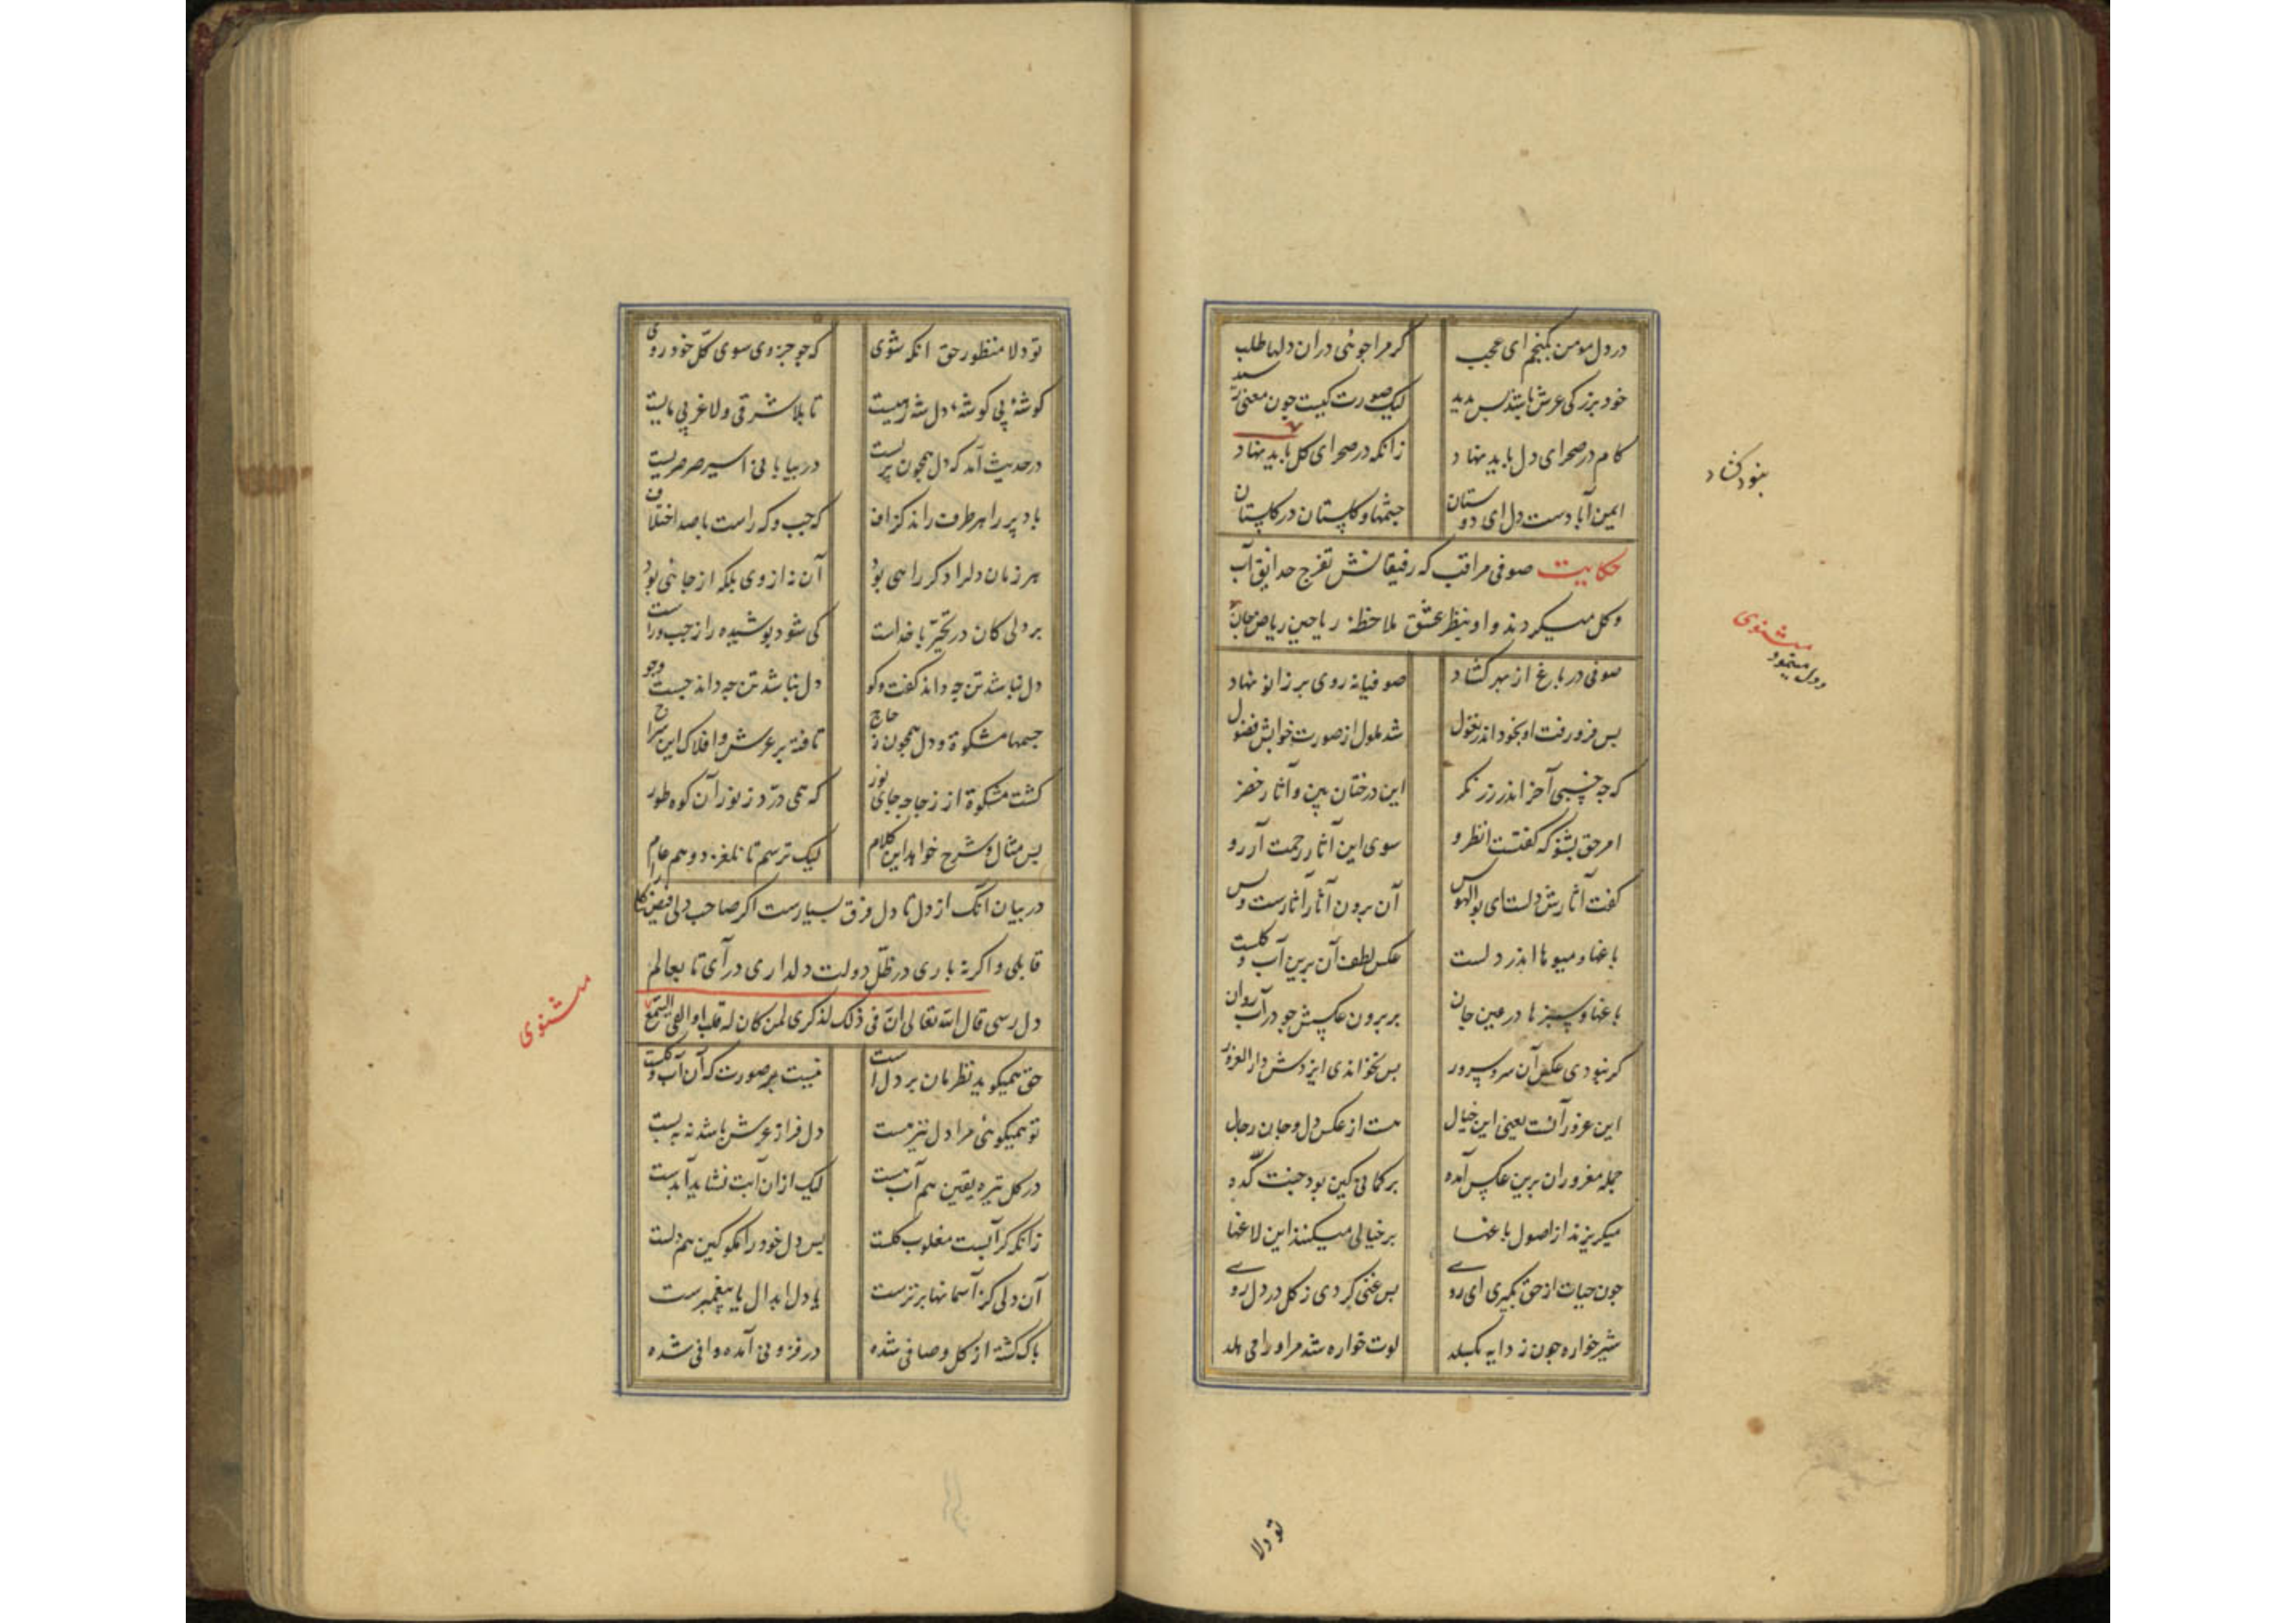 در دل مومن بکنجم ای عجب کر مرا جوئی دران دلها طلب
خود بزرکی عرش باشد بس مدید لیک صورت کیست چون معنی رسید
کام در صحرای دل باید نهاد زانکه در صحرای کل باید نهاد
بنود کشاد
ایمن آبادست دل ای دوستان چشمها و کلستان در کلستان
حکایت صوفی مراقب که رفیقانش تفرج حدایق آب
و کل میکردند و او بنظر عشق ملاحظهٔ ریاحین ریاض جان
مثنوی
و دل مینمود
صوفی در باغ از بهر کشاد صوفیانه روی بر زانو نهاد
بس فرو رفت او بخود اندر نغول شد ملول از صورت خوابش فضول
که چه خسبی آخر اندر رز نکر این درختان بین و آثار خضر
امر حق بشنو که کفتست انظروا سوی این آثار رحمت آر رو
کفت آثارش دلست ای بوالهوس آن برون آثار آثارست و بس
باغها و میوها اندر دلست عکس لطف آن برین آب و کلست
باغها و سبزها در عین جان بر برون عکسش چو در آب روان
کر نبودی عکس آن سرو سرور بس نخواندی ایزدش دار الغرور
این غرور آنست یعنی این خیال هست از عکس دل و جان رجال
جمله مغروران برین عکس آمده بر کمانی کین بود جنت کده
میکریزند از اصول باغها بر خیالی میکنند این لاغها
چون حیات از حق بکیری ای روی بس غنی کردی ز کل در دل روی
شیر خواره چون ز دایه بکسلد لوت خواره شد مر او را می هلد
تو دلا
تو دلا منظور حق انکه شوی که چو جزوی سوی کل خود روی
کوشهٔ بی کوشهٔ دل شه رهیست تاب لا شرقی و لا غربی مهیست
در حدیث آمد که دل همچون پریست در بیابانی اسیر صرصریست
باد پر را هر طرف راند کزاف که چب و که راست با صد اختلاف
هر زمان دل را دکر رایی بود آن نه از وی بلکه از جائی بود
بر دلی کان در تحیر با خداست کی شود بوشیده راز چب و راست
دل نباشد تن چه داند کفت و کو دل نباشد تن چه داند جست و جو
جسمها مشکوة و دل همچون زجاج تافته بر عرش و افلاک این سراج
کشت مشکوة از زجاجه جای نور که همی درّد ز نور آن کوه طور
بس مثال و شرح خواهد این کلام لیک ترسم تا نلغزد وهم عام
در بیان آنک از دل تا دل فرق بسیارست اکر صاحب دلی فیض را
قابلی و اکر نه باری در ظلّ دولت دلداری درآی تا بعالم
دل رسی قال الله تعالی انّ فی ذلک لذکری لمن کان له قلب او القی السّمع
مثنوی
حق همیکوید نظرمان بر دل است نیست بر صورت که آن آب و کلست
تو همیکوئی مرا دل نیز هست دل فراز عرش باشد نه ببست
در کل تیره یقین هم آب هست لیک ازان آبت نشاید آبدست
زانکه کر آبست مغلوب کلست بس دل خود را مکو کین هم دلست
آن دلی کز آسمانها برترست یا دل ابدال یا پیغمبرست
باک کشته از کل و صافی شده در فزونی آمده وافی شده